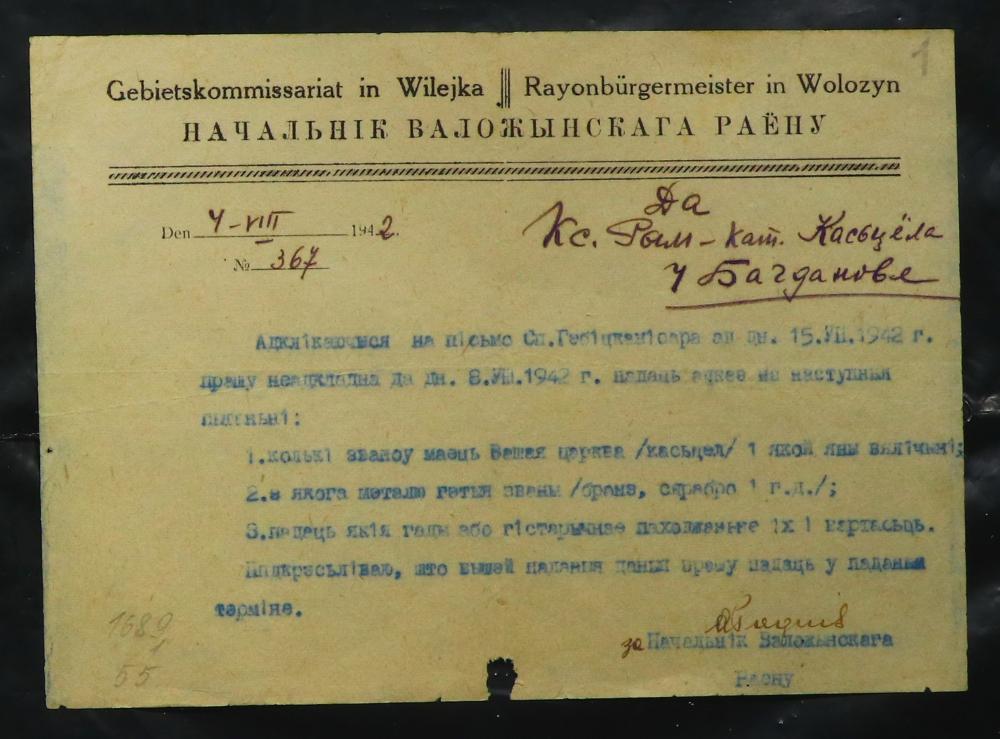 1
Gebietskommissariat in Wilejka Rayonbürgermeister in Wolozyn
НАЧАЛЬНІК ВАЛОЖЫНСКАГА РАЁНУ
Den 4-VIII 1942.
№ 367
Да
Кс. Рым-кат. Касьцёла
у Багданове
Адклікаючыся на пісьмо Сп.Гебіцкамісара ад дн. 15.VII.1942 г.
прашу неадкладна да дн. 8.VIII.1942 г. падаць адказ на наступныя
пытаньні:
1.колькі званоў маець Вашая царква /касьцел/ і якой яны вялічыні;
2.з якога металю гэтыя званы /бронз, сярэбро і г.д./;
3.падаць якія гады або гістарычнае паходжаньне іх і вартасьць.
Падкрэсьліваю, што вышэй паданыя даныя прашу падаць у паданым
тэрміне.
за Начальнік Валожынскага
Раёну
1689
1
55